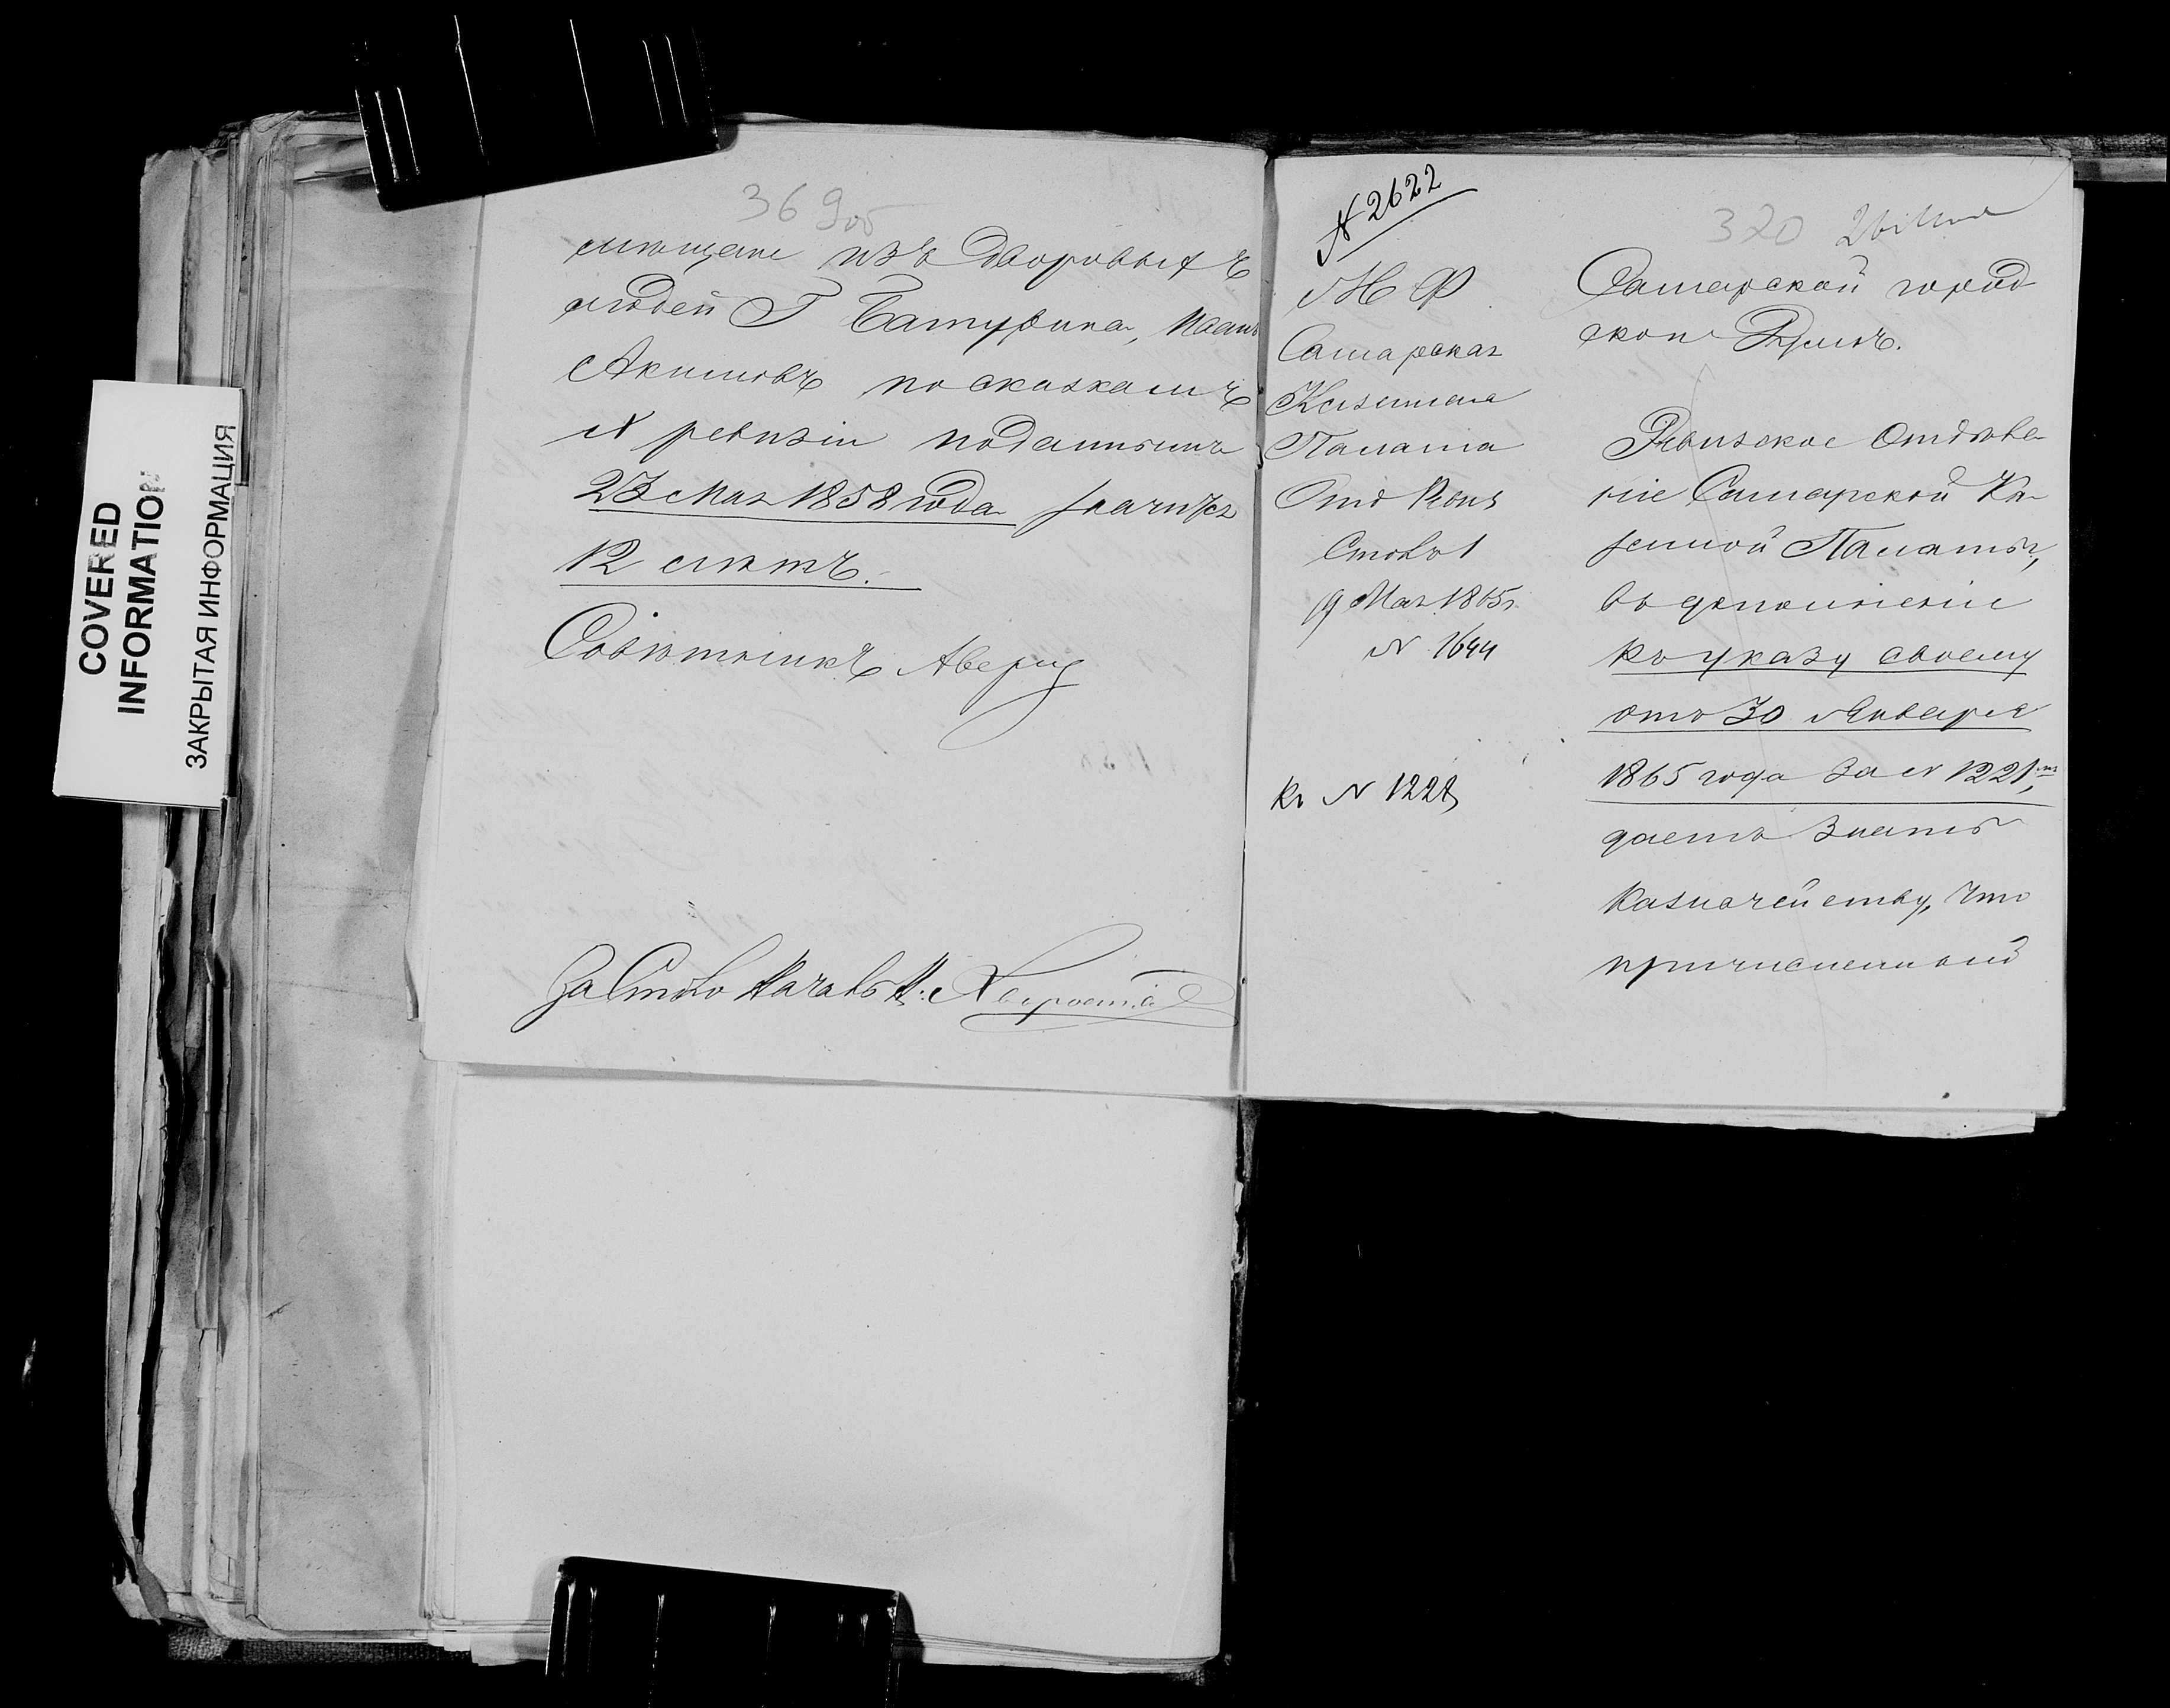 COVERED
INFORMATION
ЗАКРЫТАЯ ИНФОРМАЦИЯ
369об
мѣщане изъ дворовыхъ
людей Г Батурина,
Акимовъ по сказкамъ
X ревизіи поданнымъ
23 Мая 1858 года значится
12 лѣтъ.
Совѣтникъ
За Столо Начальн
N 2622
М Ф
Самарская
Казенная
Палата
Отд Ревиз
Столъ 1
19 Мая 1865 г.
N 1644
Къ N 1221
320
Самарской город
ской Думѣ.
Ревизское Отдѣле
ніе Самарской Ка
зенной Палаты,
въ дополненіе
къ указу своему
отъ 30 Января
1865 года за N 1221,
даетъ знать
Казначейству, что
причисленный